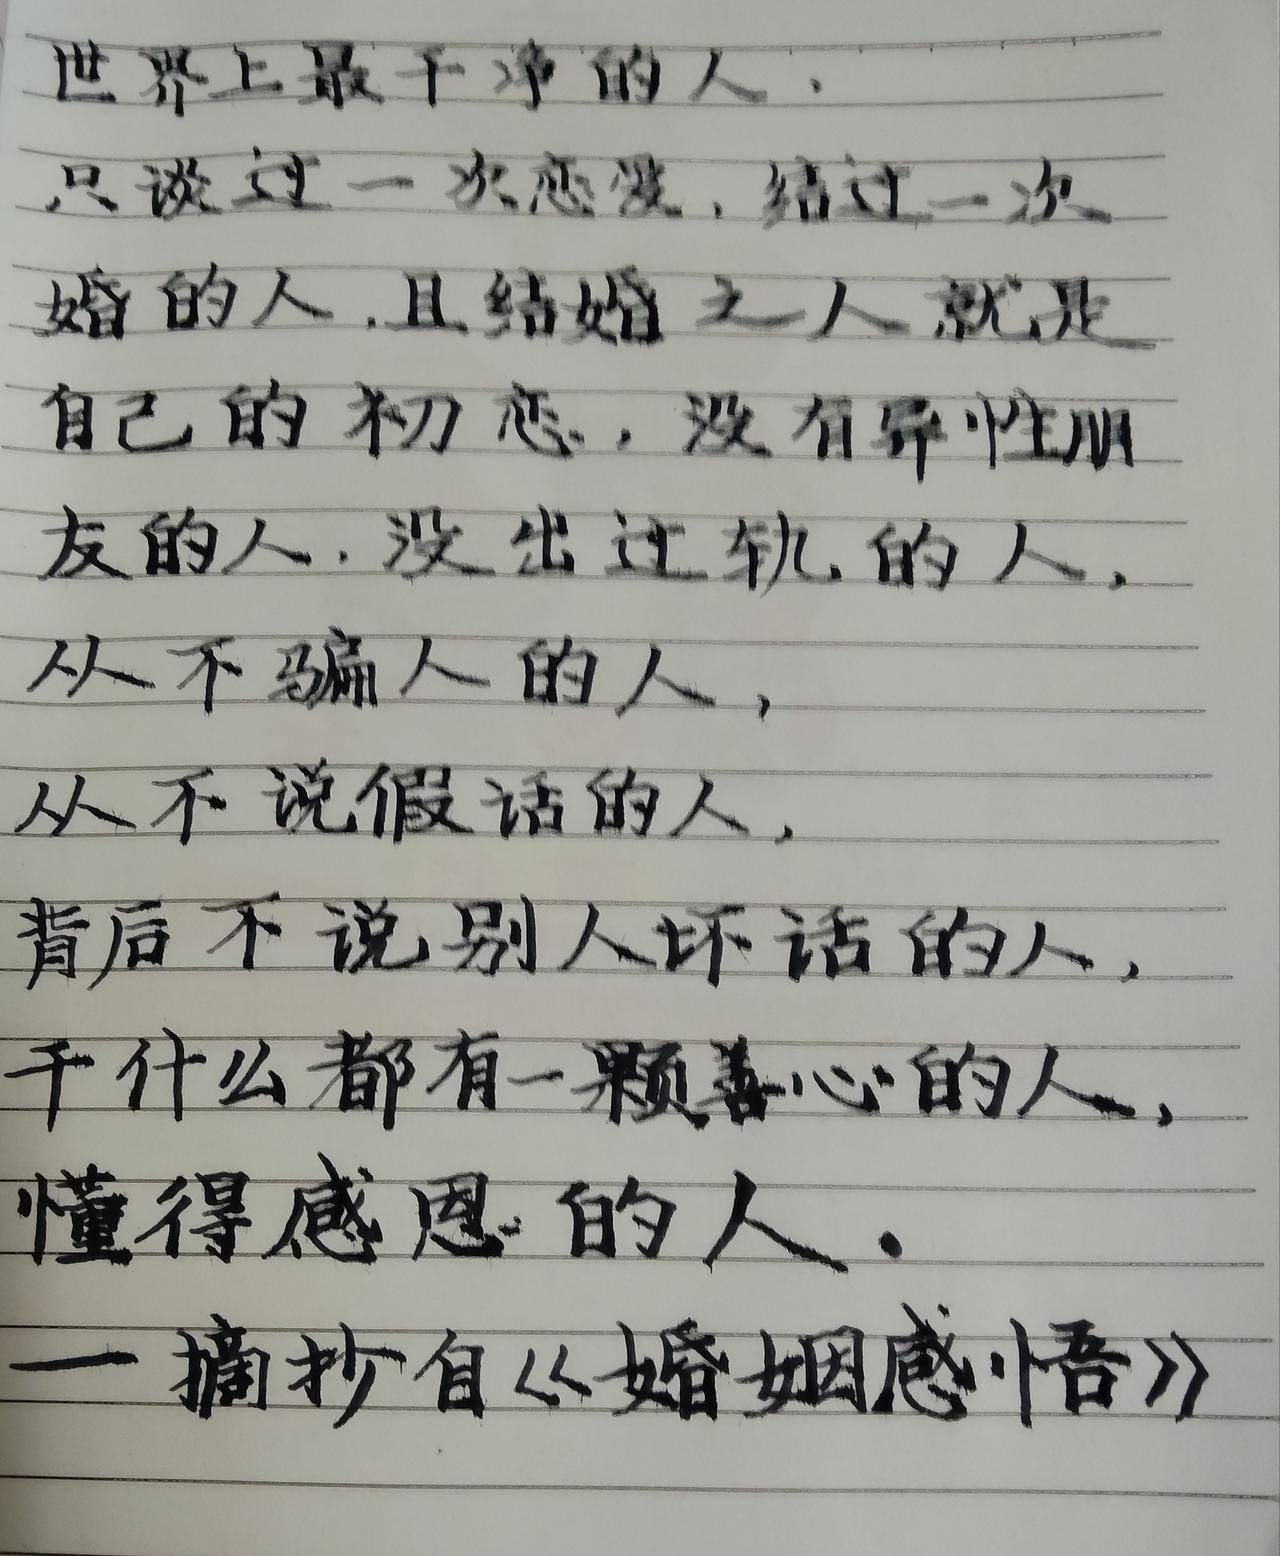 世界上最干净的人.
只谈过一次恋爱,结过一次
婚的人.且结婚之人就是
自己的初恋,没有异性朋
友的人.没出过轨的人,
从不骗人的人,
从不说假话的人,
背后不说别人坏话的人,
干什么都有一颗善心的人,
懂得感恩的人.
一摘抄自《婚姻感悟》